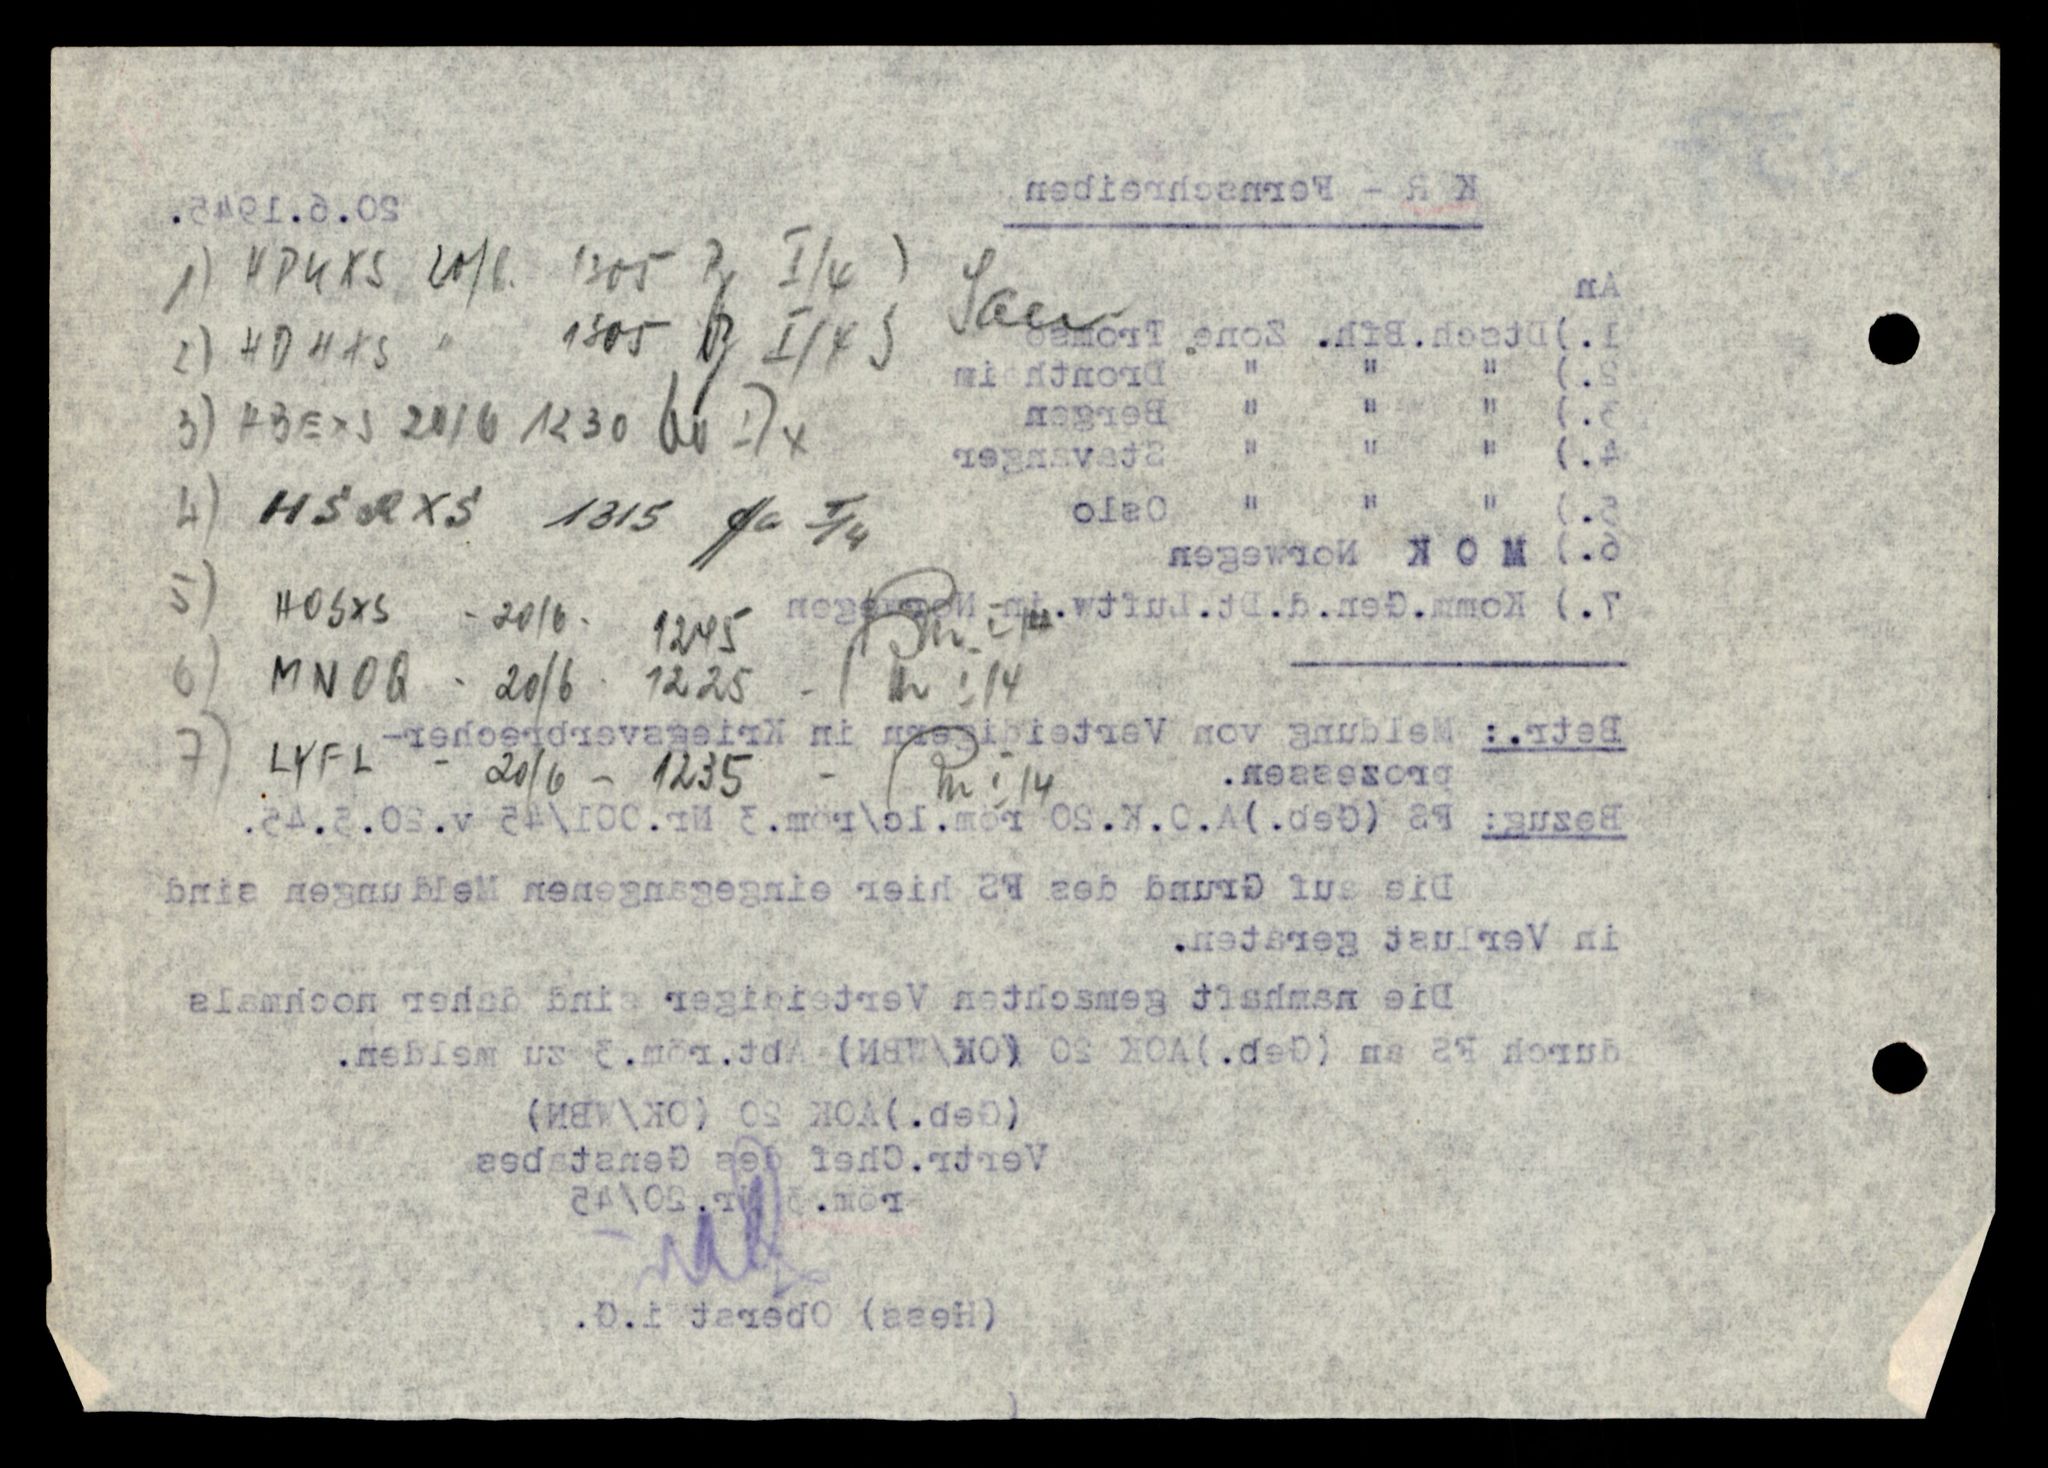 K R - Fernschreiben
20.6.1945.
An
1.) Dtsch.Bfh. Zone Tromsö
2.) " " " Dronth im
3.) " " " Bergen
4.) " " " Stavanger
5.) " " " Oslo
6.) M O K Norwegen
7.) Komm.Gen.d.Dt.Luftw.in Norwegen
Betr.: Meldung von Verteidigern in Kriegsverbrecher-
prozessen.
Bezug: FS (Geb.)A.O.K.20 röm.1c/röm.3 Nr.001/45 v.20.5.45.
Die auf Grund des FS hier eingegangenen Meldungen sind
in Verlust geraten.
Die namhaft gemachten Verteidiger sind daher nochmals
durch FS an (Geb.)AOK 20 (OK/WBN) Abt.röm.3 zu melden.
(Geb.)AOK 20 (OK/WBN)
Vertr.Chef des Genstabes
röm.3 Nr.20/45
(Hess) Oberst i.G.
1) 20/6. 1305 I/4
2) HDHXS " 1305 I/4
3) HBEXS 20/6 1230
4) HSRXS 1315 I/4
5) HOSXS - 20/6 - 1245
6) MNOQ - 20/6 - 1225 - I/4
7) LYFL - 20/6 - 1235 - I/4